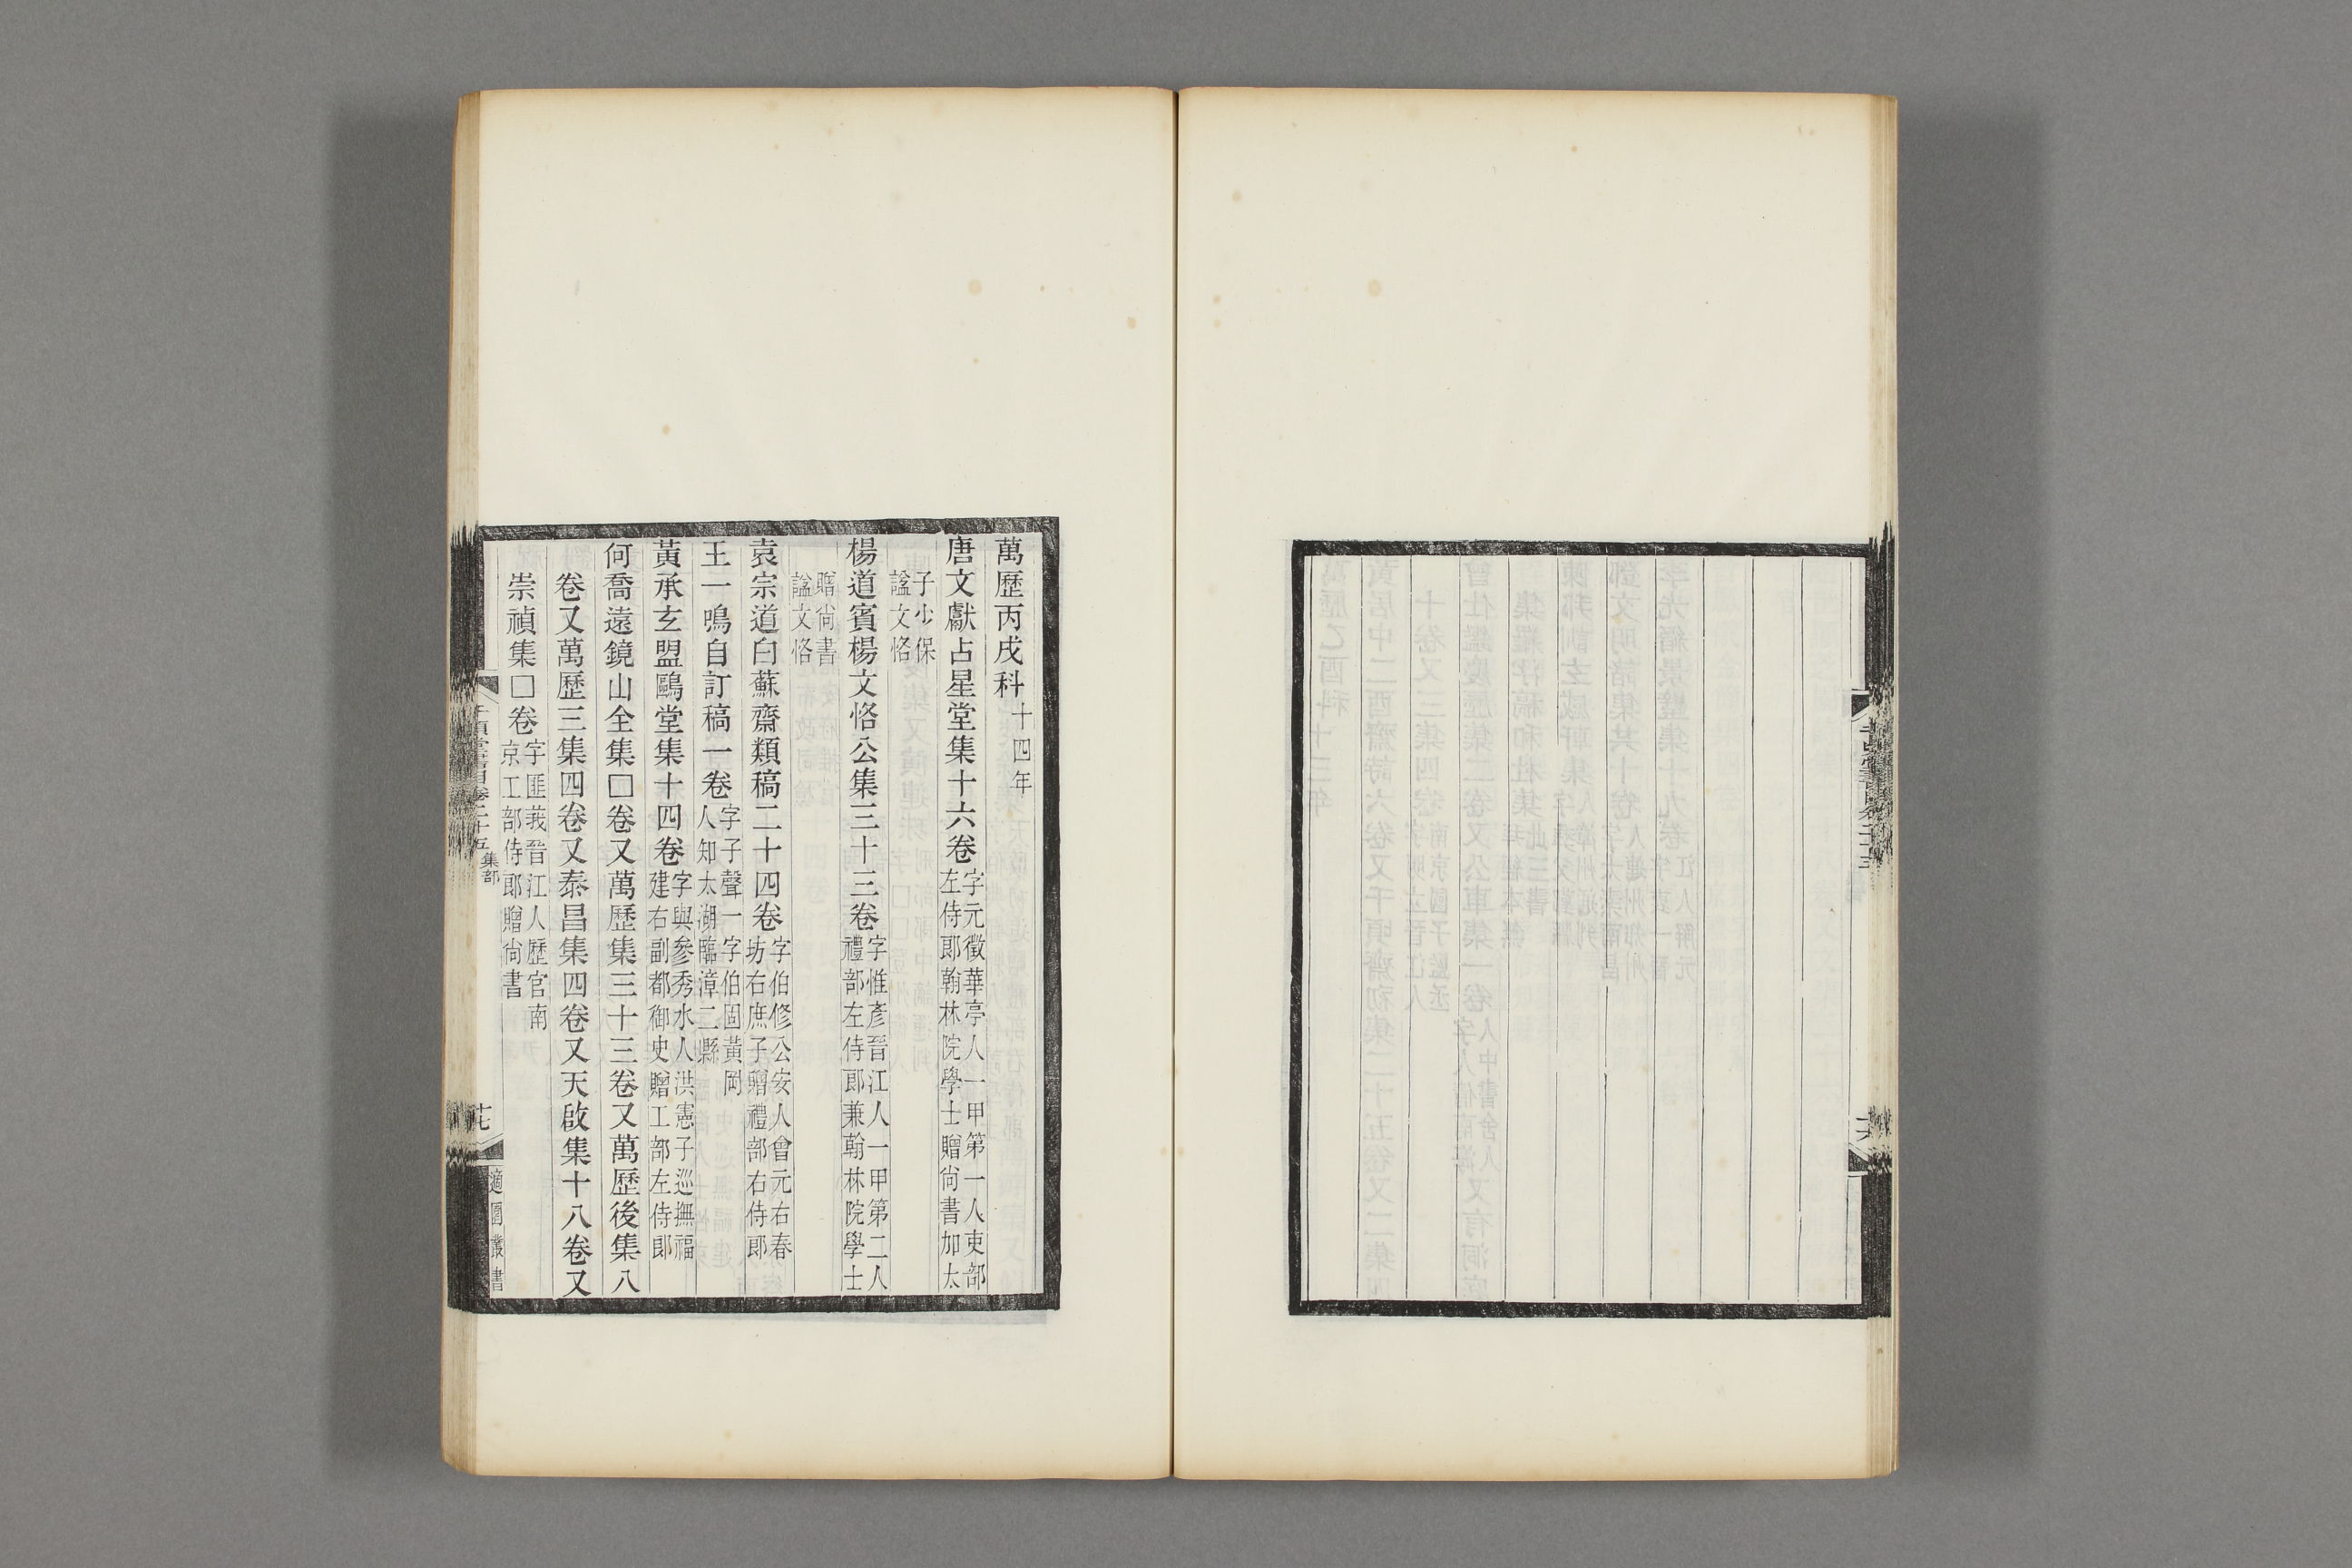 萬歷丙戌科十四年
唐文獻占星堂集十六卷字元徵華亭人一甲第一人吏部左侍郎翰林院學士贈尚書加太
子少保謚文恪
楊道賓楊文恪公集三十三卷字惟彥晉江人一甲第二人禮部左侍郎兼翰林院學士
贈尚書謚文恪
袁宗道白蘇齋類稿二十四卷字伯修公安人會元右春坊右庶子贈禮部右侍郎
王一鳴自訂稿一卷字子聲一字伯固黃岡人知太湖臨漳二縣
黃承玄盟鷗堂集十四卷字與參秀水人洪憲子巡撫福建右副都御史贈工部左侍郎
何喬遠鏡山全集□卷又萬歷集三十三卷又萬歷後集八
卷又萬歷三集四卷又泰昌集四卷又天啟集十八卷又
崇禎集□卷字匪莪晉江人歷官南京工部侍郎贈尚書
集部
十七
適園叢書